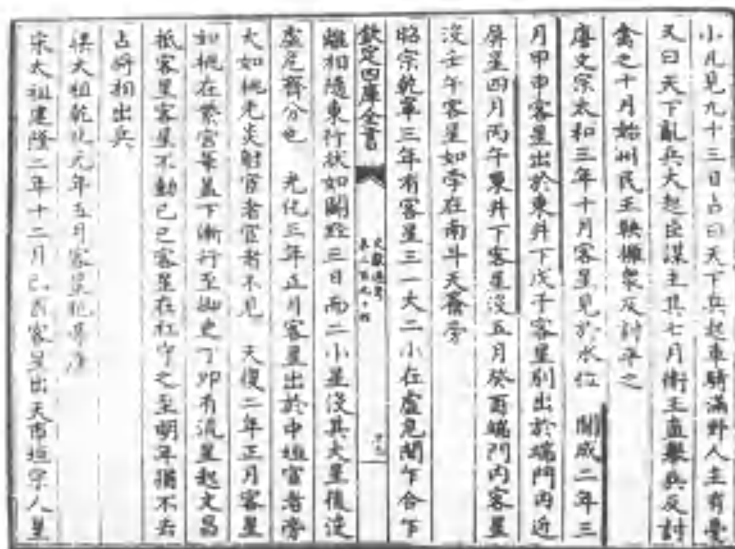 小凡見九十三日占曰天下兵起車騎滿野人主有憂
又曰天下亂兵大起臣謀主其七月衛王直舉兵反討
禽之十月始州民王鞅擁衆反討平之
唐文宗太和三年十月客星見於水位 開成二年三
月甲申客星出於東井下戊子客星别出於端門内近
屏星四月丙午東井下客星沒五月癸酉端門内客星
沒壬午客星如孛在南斗天籥旁
昭宗乾寧三年有客星三一大二小在虚危間乍合乍
欽定四庫全書
文獻通考
卷二百九十四
離相隨東行狀如鬭經三日而二小星沒其大星後沒
虚危齊分也 光化三年正月客星出於中垣宦者旁
大如桃光炎射宦者宦者不見 天復二年正月客星
如桃在紫宫華蓋下漸行至御女丁卯有流星起文昌
抵客星客星不動己巳客星在杠守之至明年猶不去
占將相出兵
梁太祖乾化元年五月客星犯帝座
宋太祖建隆二年十二月己酉客星出天市垣宗人星